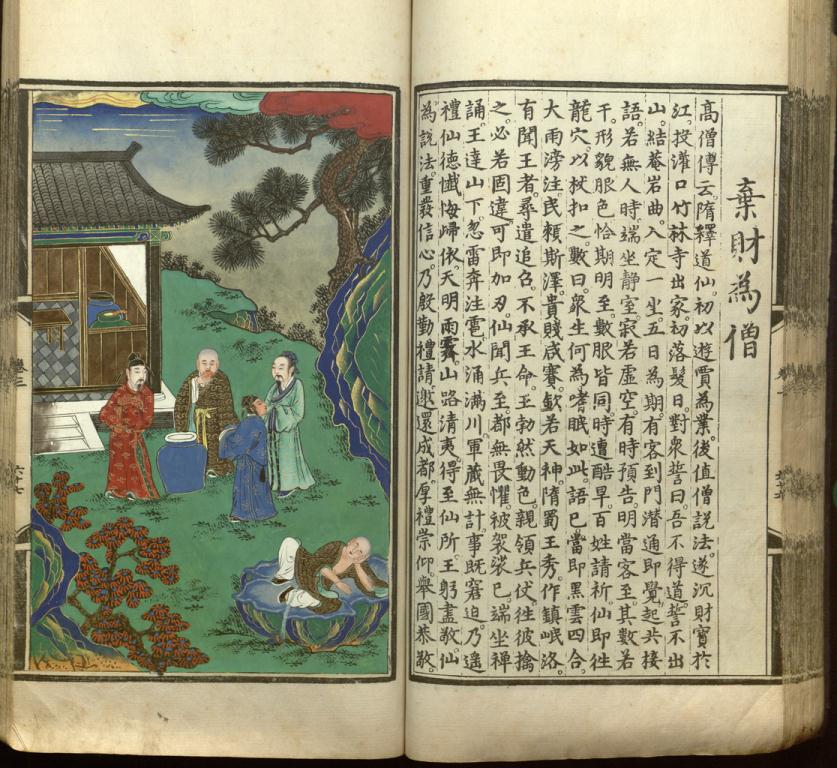 棄財為僧
高僧傳云。隋釋道仙。初以遊賈為業。後值僧說法。遂沉財寶於
江。投灌口竹林寺出家。初落髮日。對衆誓曰。吾不得道。誓不出
山。結菴岩曲。入定一坐。五日為期。有客到門。潛通即覺。起共接
語。若無人時。端坐静室。寂若虛空。有時預告。明當客至。其數若
干。形貌服色。恰期明至。數服皆同。時遭酷旱。百姓請祈。仙即徃
龍穴。以杖扣之。數曰。衆生何為嗜眠如此。語已當即黑雲四合。
大雨滂注。民賴斯澤。貴賤咸賽。欽若天神。隋蜀王秀。作鎮岷洛。
有聞王者。尋遣追召。不承王命。王勃然動色。親領兵仗。徃彼擒
之。必若固違。可即加刃。仙聞兵至。都無畏懼。被袈裟已。端坐禪
誦。王達山下。忽雷奔注。雹水涌滿川。軍藏無計。事既窘迫。乃遥
禮仙德。懺悔歸依。天明雨霽。山路清夷。得至仙所。王躬盡敬。仙
為說法。重發信心。乃殷勤禮請。邀還成都。厚禮崇仰。舉國恭敬。
卷三
六十七